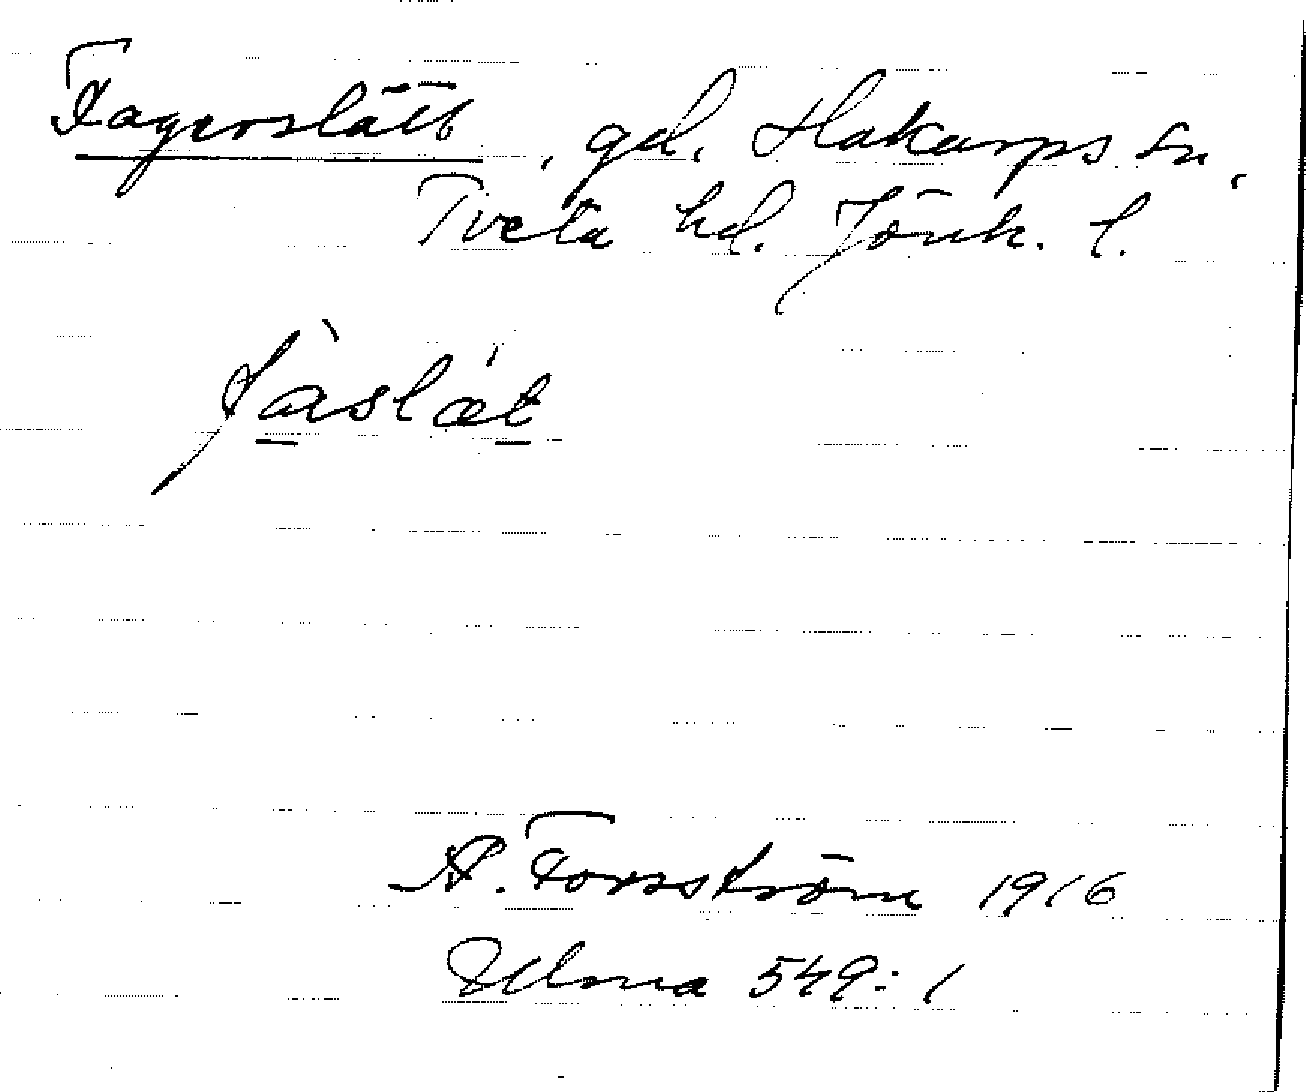 Fagerslätt, gd. Hakarps sn,
Tveta hd. Jönk. l.
fàslǽt
A. Forsström 1916
Ulma 549:1